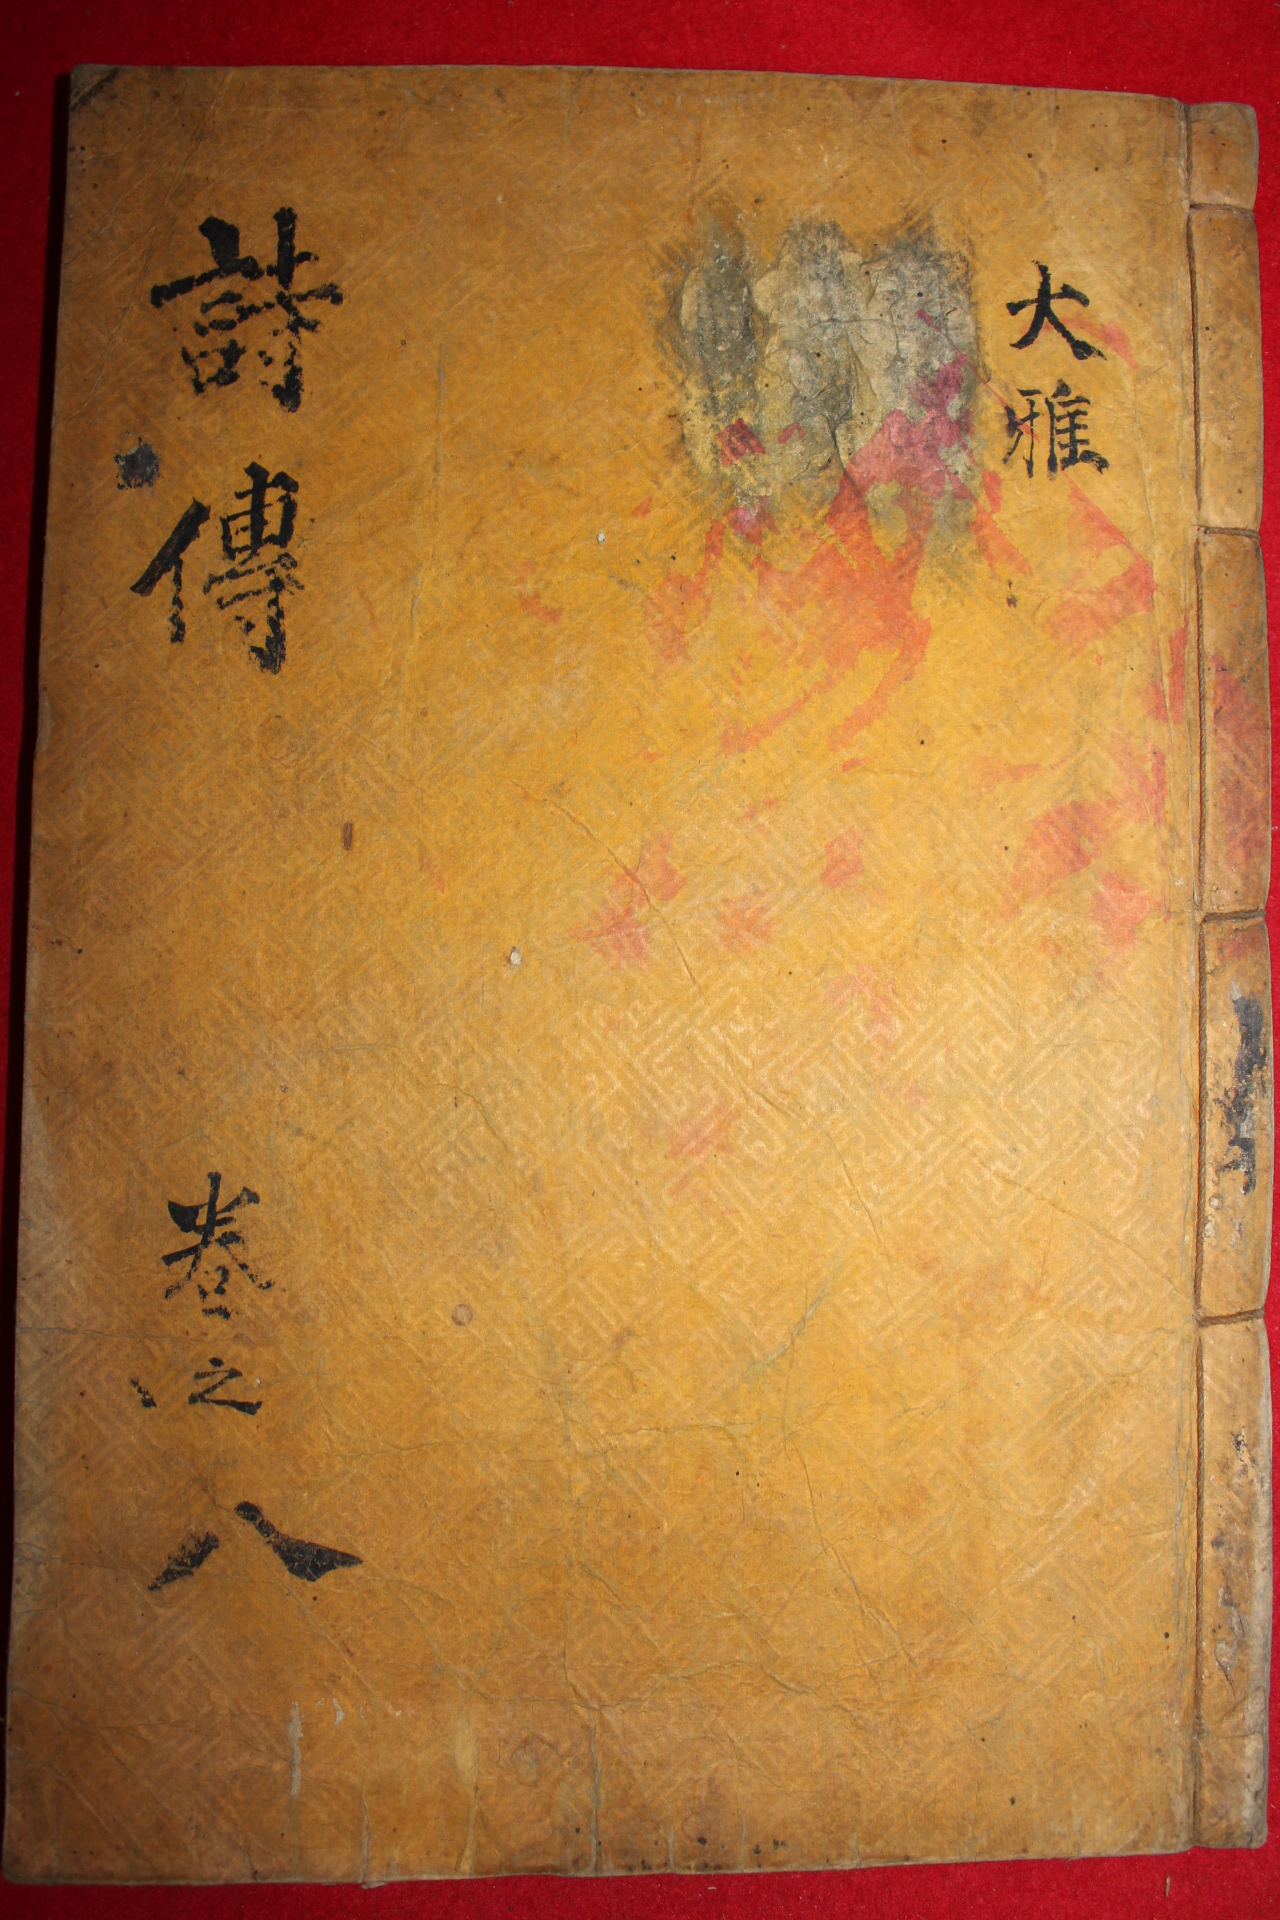 大雅
詩傳 卷之八